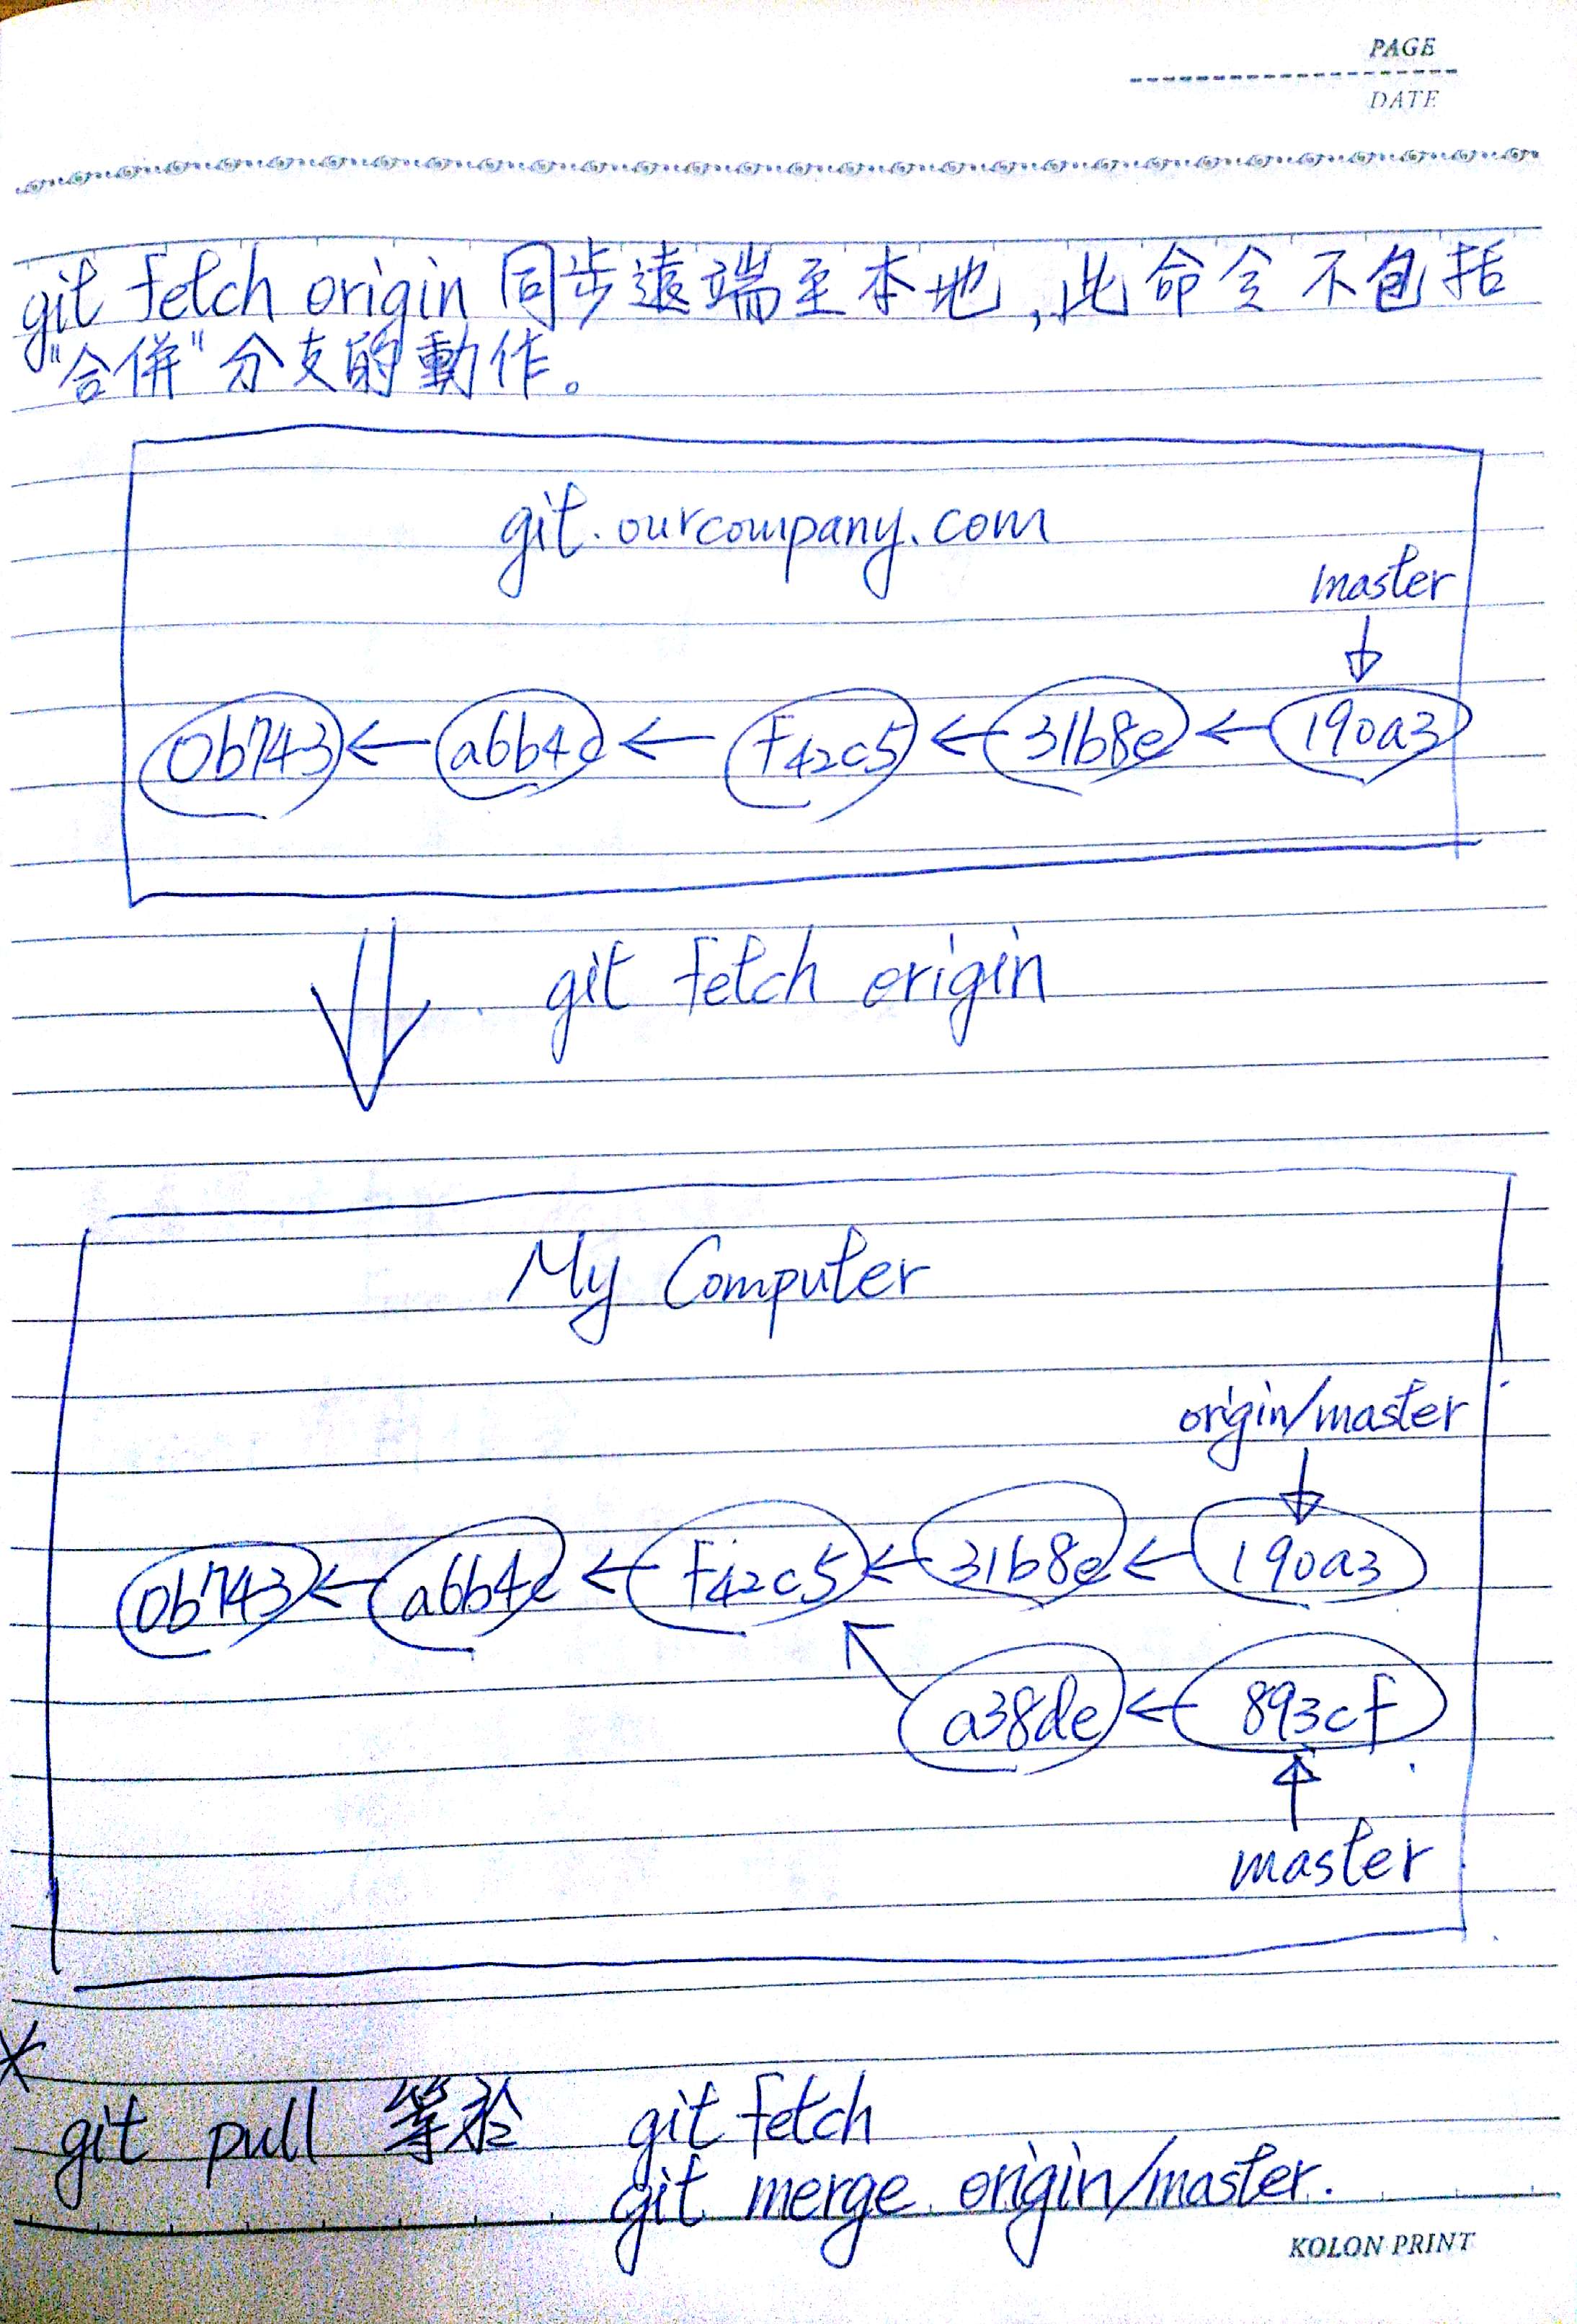 PAGE
DATE
git fetch origin 同步遠端至本地,此命令不包括
"合併"分支的動作。
git.ourcompany.com
master
0b743 a6b4c f42c5 31b8e 190a3
git fetch origin
My Computer
origin/master
0b743 a6b4c f42c5 31b8e 190a3
a38de 893cf
master
*
git pull 等於 git fetch
git merge origin/master.
KOLON PRINT